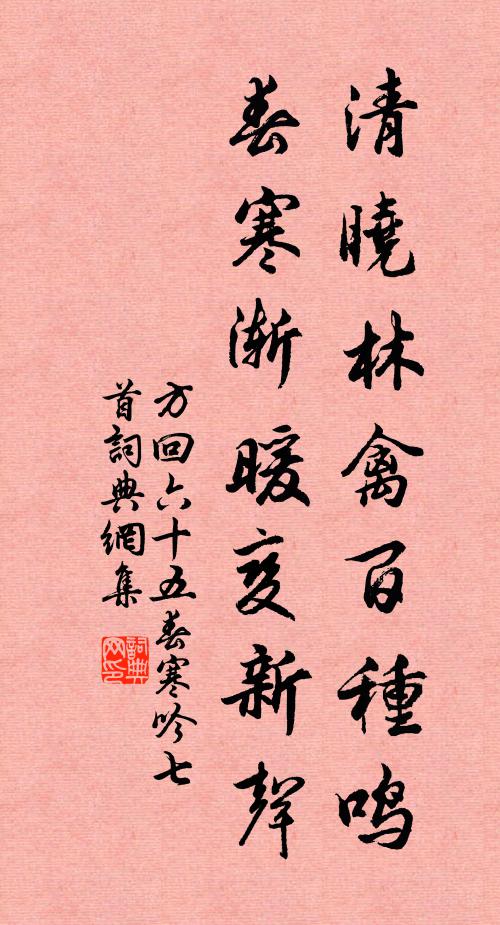 清曉林禽百種鳴
春寒漸暖变新聲
方回六十五春寒吟七
首詞典網集
詞典网印